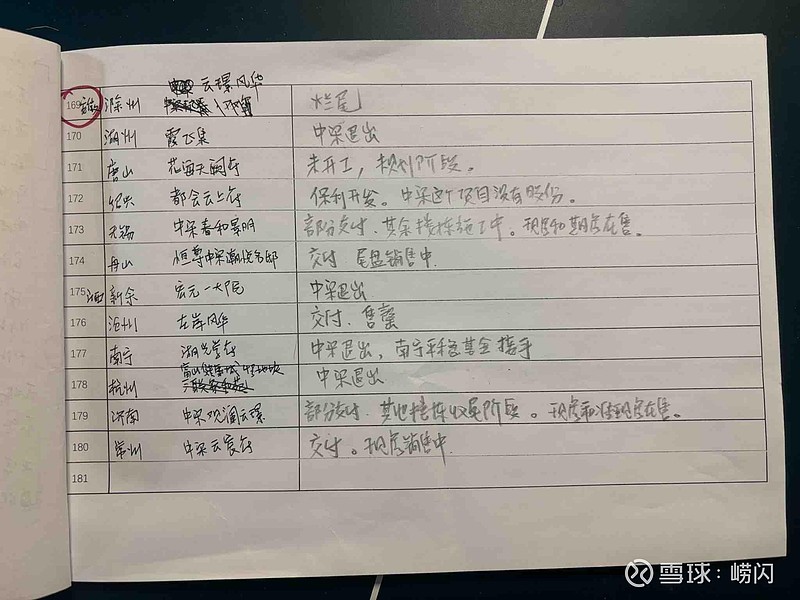 169 滁州 云璟风华 烂尾
170 湖州 霞飞集 中梁退出
171 唐山 花海天阙府 未开工，规划阶段。
172 绍兴 都会云上府 保利开发。中梁这个项目没有股份。
173 无锡 中梁春和景明 部分交付，其余楼栋施工中。现房和期房在售。
174 舟山 恒尊中梁潮悦名邸 交付 尾盘销售中.
175 新余 宏元一大民 中梁退出
176 沧州 左岸风华 交付. 售罄
177 南宁 湖光堂府 中梁退出，南宁平稳基金接手
178 杭州 中梁退出
179 济南 中梁观澜云璟 部分交付. 其他楼栋收尾阶段。现房和准现房在售。
180 常州 中梁云宸府 交付。现房销售中.
181
雪球：崂闪